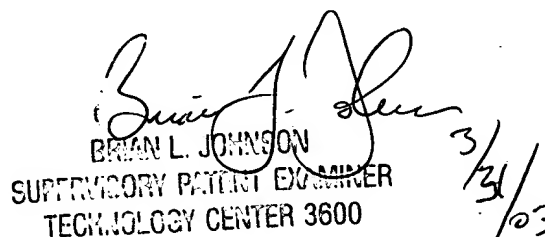 Brian L. Johnson
BRIAN L. JOHNSON
SUPERVISORY PATENT EXAMINER
TECHNOLOGY CENTER 3600
3/31/03